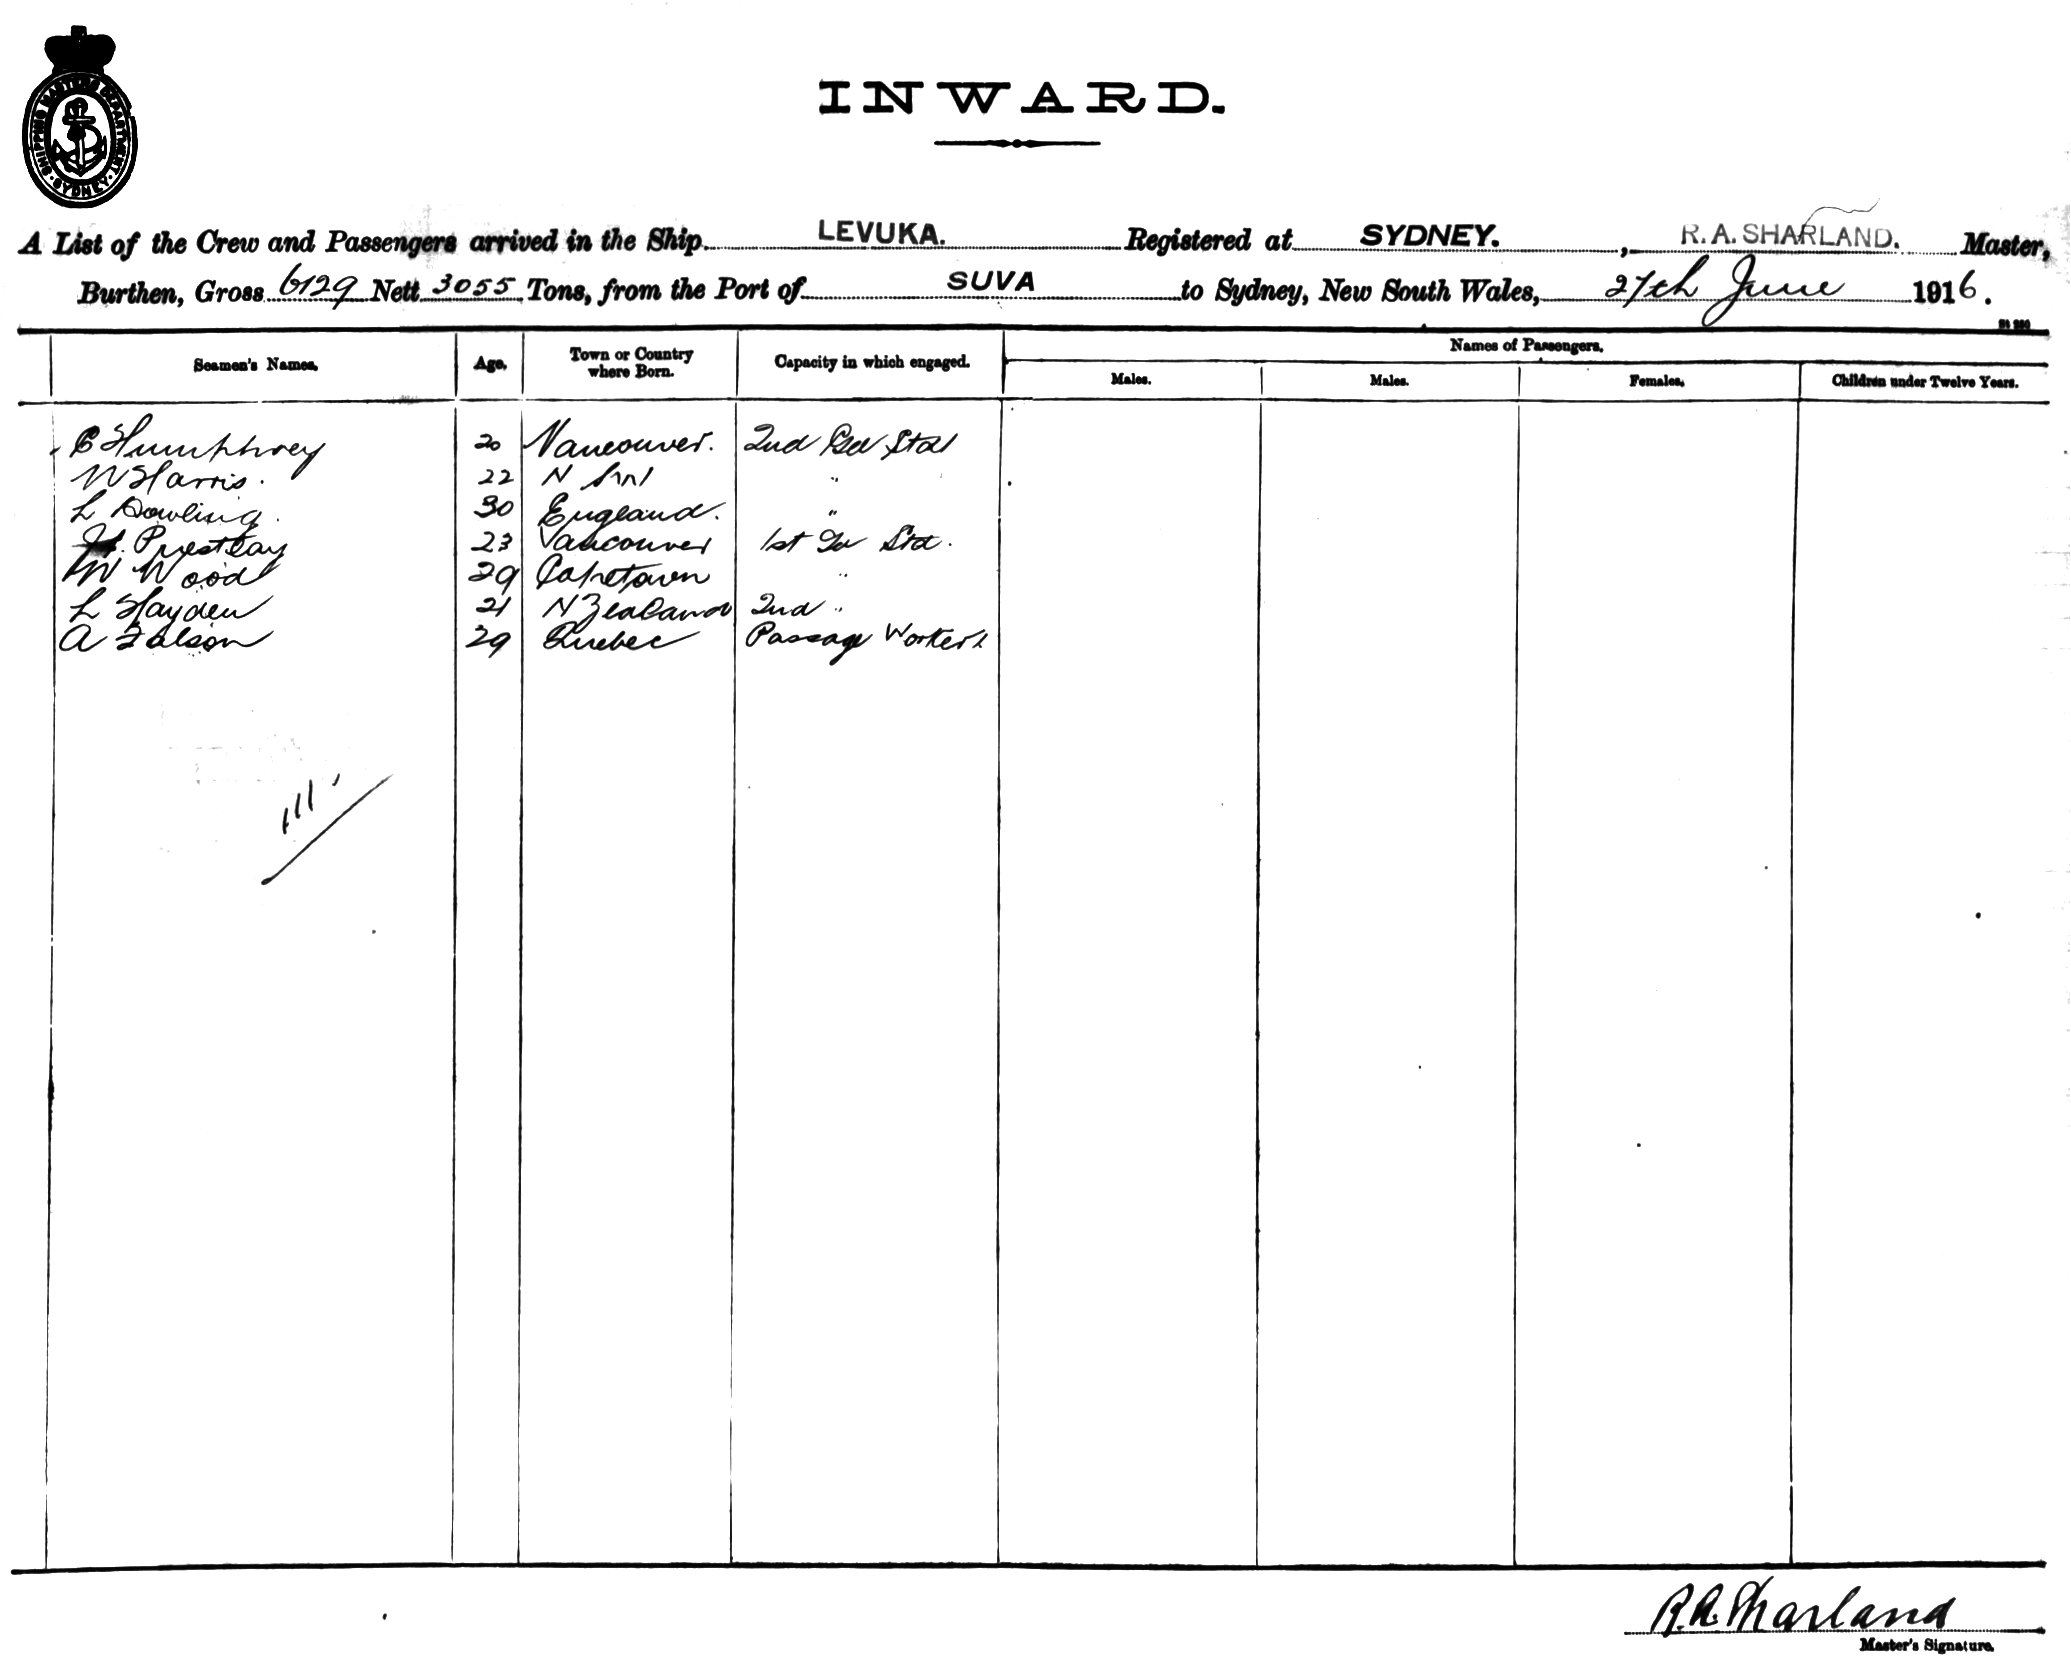 SHIPPING MASTERS DEPARTMENT SYDNEY
INWARD.
A List of the Crew and Passengers arrived in the Ship LEVUKA. Registered at SYDNEY., R. A. SHARLAND. Master,
Burthen, Gross 6129 Nett 3055 Tons, from the Port of SUVA to Sydney, New South Wales, 27th June 1916.
Names of Passengers.
Seamen's Names. Age. Town or Country where Born. Capacity in which engaged. Males. Males. Females. Children under Twelve Years.
Humphrey 20 Vancouver. 2nd
W Harris. 22 N "
L Dowling. 30 England. "
Priestlay 23 Vancouver 1st
W Wood 29 Capetown "
L Hayden 21 N Zealand 2nd "
A Falson 29 Quebec Passage Worker
111
R. A. Sharland
Master's Signature.